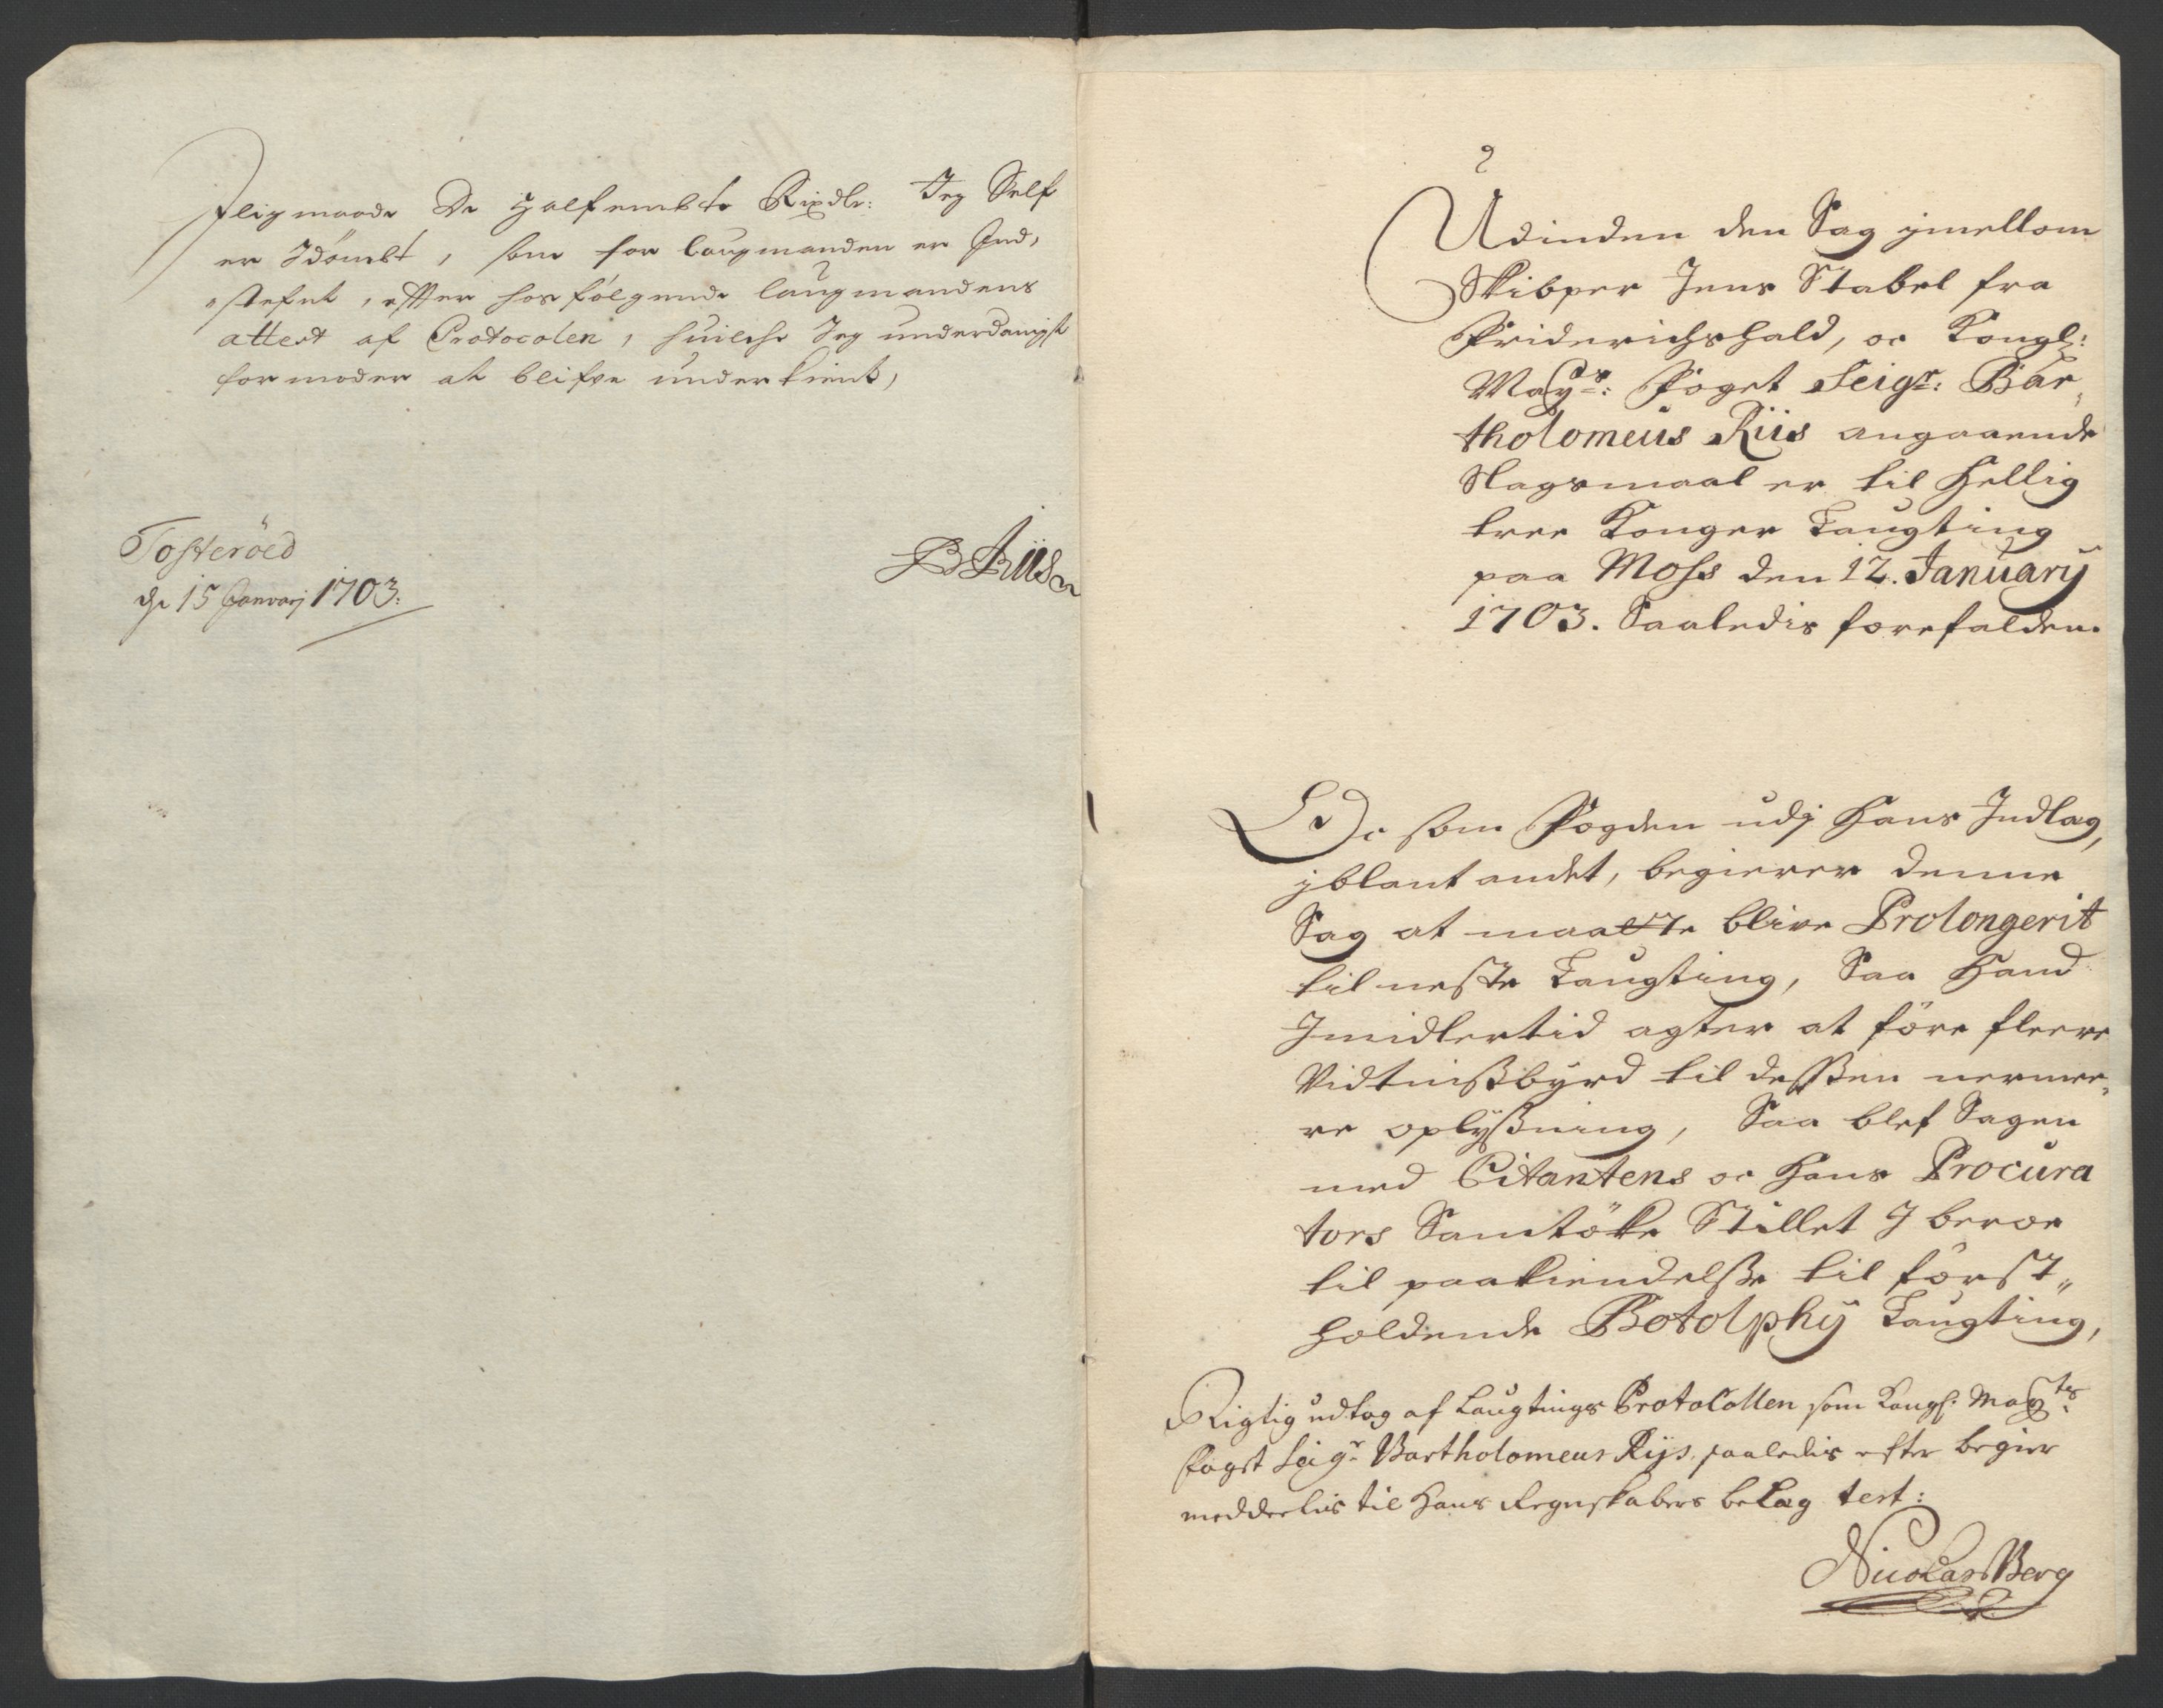 Iligmaade De halfembte Rixdlr: Jeg Self
er Idömbt, som for laugmanden er Ind,
stefnt, efter hosfölgende laugmandens
attest af Protocolen, huilche Jeg underdanigst
formoder at blifve underkient,
Tosteröed
de 15 Janvarj 1703:
B Riis
Udinden den Sag ymellom
Skibper Jens Stabel fra
Friderichshald, oc Kongl:
Mayts: Foget Seigr: Bar,
tholomeus Riis angaaende
Slagsmaal er til Hellig
tree Konger Laugting
paa Moss den 12. January
1703. Saaledis forefalden
Oc som Fogden udj Hans Indlag,
yblant andet, begierer denne
Sag at maatte blive Prolongerit
til neste Laugting, Saa Hand
Imidlertid agter at före fleere
Vidtnißbyrd til deßen nerme,
re oplyßning, Saa blef Sagen
med Citantens oc Hans Procura
tors Samtöke Stillet J beroe
til paakiendelße til först„
holdende Botolphy Laugting,
Rigtig udtog af Laugtings Protocollen som Kongl: Mayts:
Foget Seigr Bartholomeus Rijs saaledis efter begier
meddeelis til Hans Regnskabers belag test:
Nicolas Berg